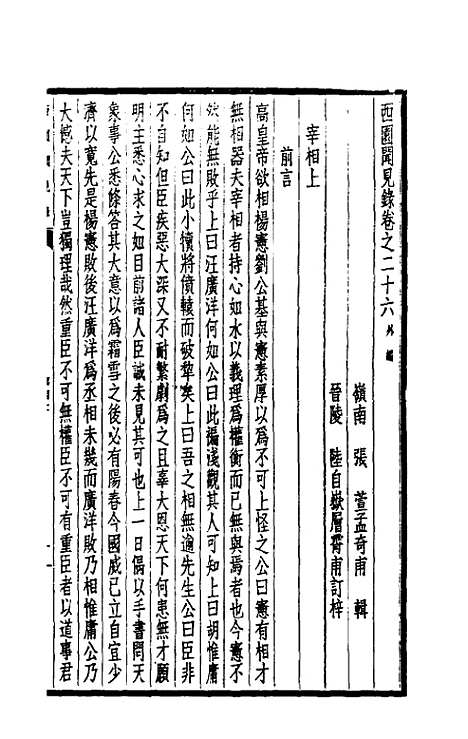 西園聞見錄卷之二十六 外編
嶺南 張 萱孟奇甫 輯
晉陵 陸自嶽層霄甫訂梓
宰相上
前言
高皇帝欲相楊憲劉公基與憲素厚以爲不可上怪之公曰憲有相才
無相器夫宰相者持心如水以義理爲權衡而已無與焉者也今憲不
然能無敗乎上曰汪廣洋何如公曰此褊淺觀其人可知上曰胡惟庸
何如公曰此小犢將僨轅而破犂矣上曰吾之相無逾先生公曰臣非
不自知但臣疾惡大深又不耐繁劇爲之且辜大恩天下何患無才願
明主悉心求之如目前諸人臣誠未見其可也上一日偶以手書問天
象事公悉條答其大意以爲霜雪之後必有陽春今國威已立自宜少
濟以寬先是楊憲敗後汪廣洋爲丞相未幾而廣洋敗乃相惟庸公乃
大慼夫天下豈獨理哉然重臣不可無權臣不可有重臣者以道事君